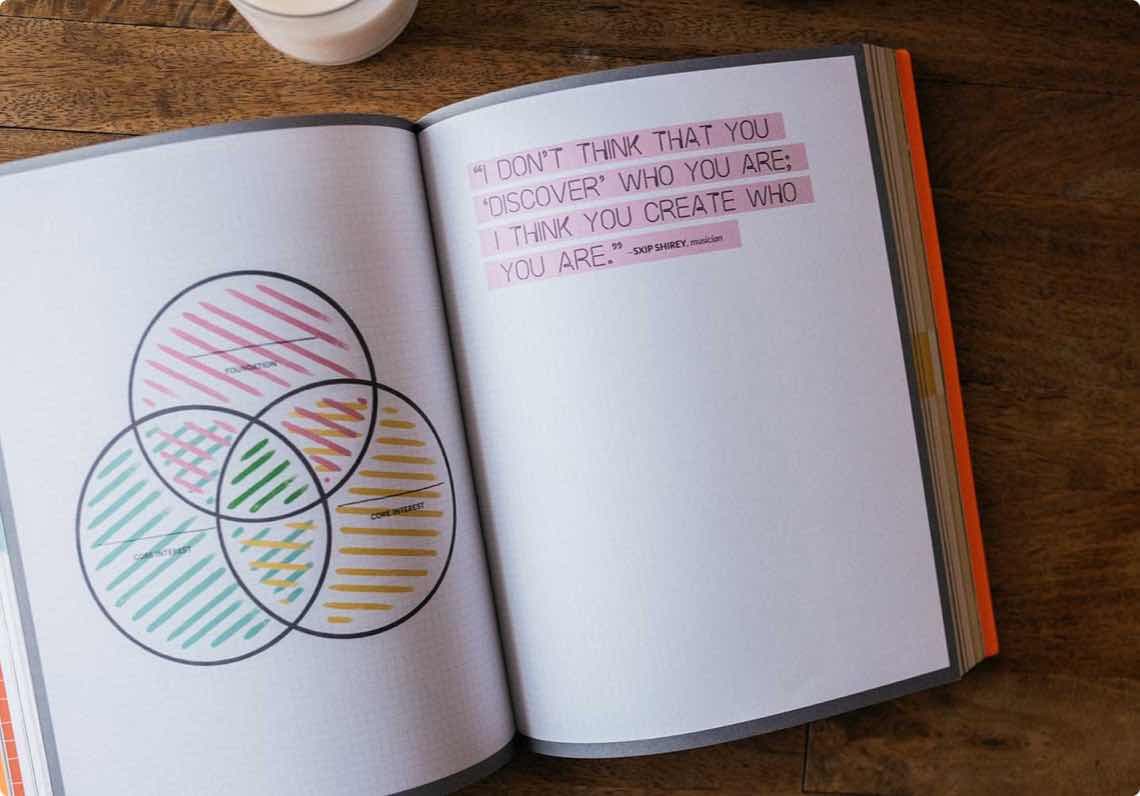 FOUNDATION
CORE INTEREST
CORE INTEREST
“I DON’T THINK THAT YOU
‘DISCOVER’ WHO YOU ARE;
I THINK YOU CREATE WHO
YOU ARE.” –SXIP SHIREY, musician